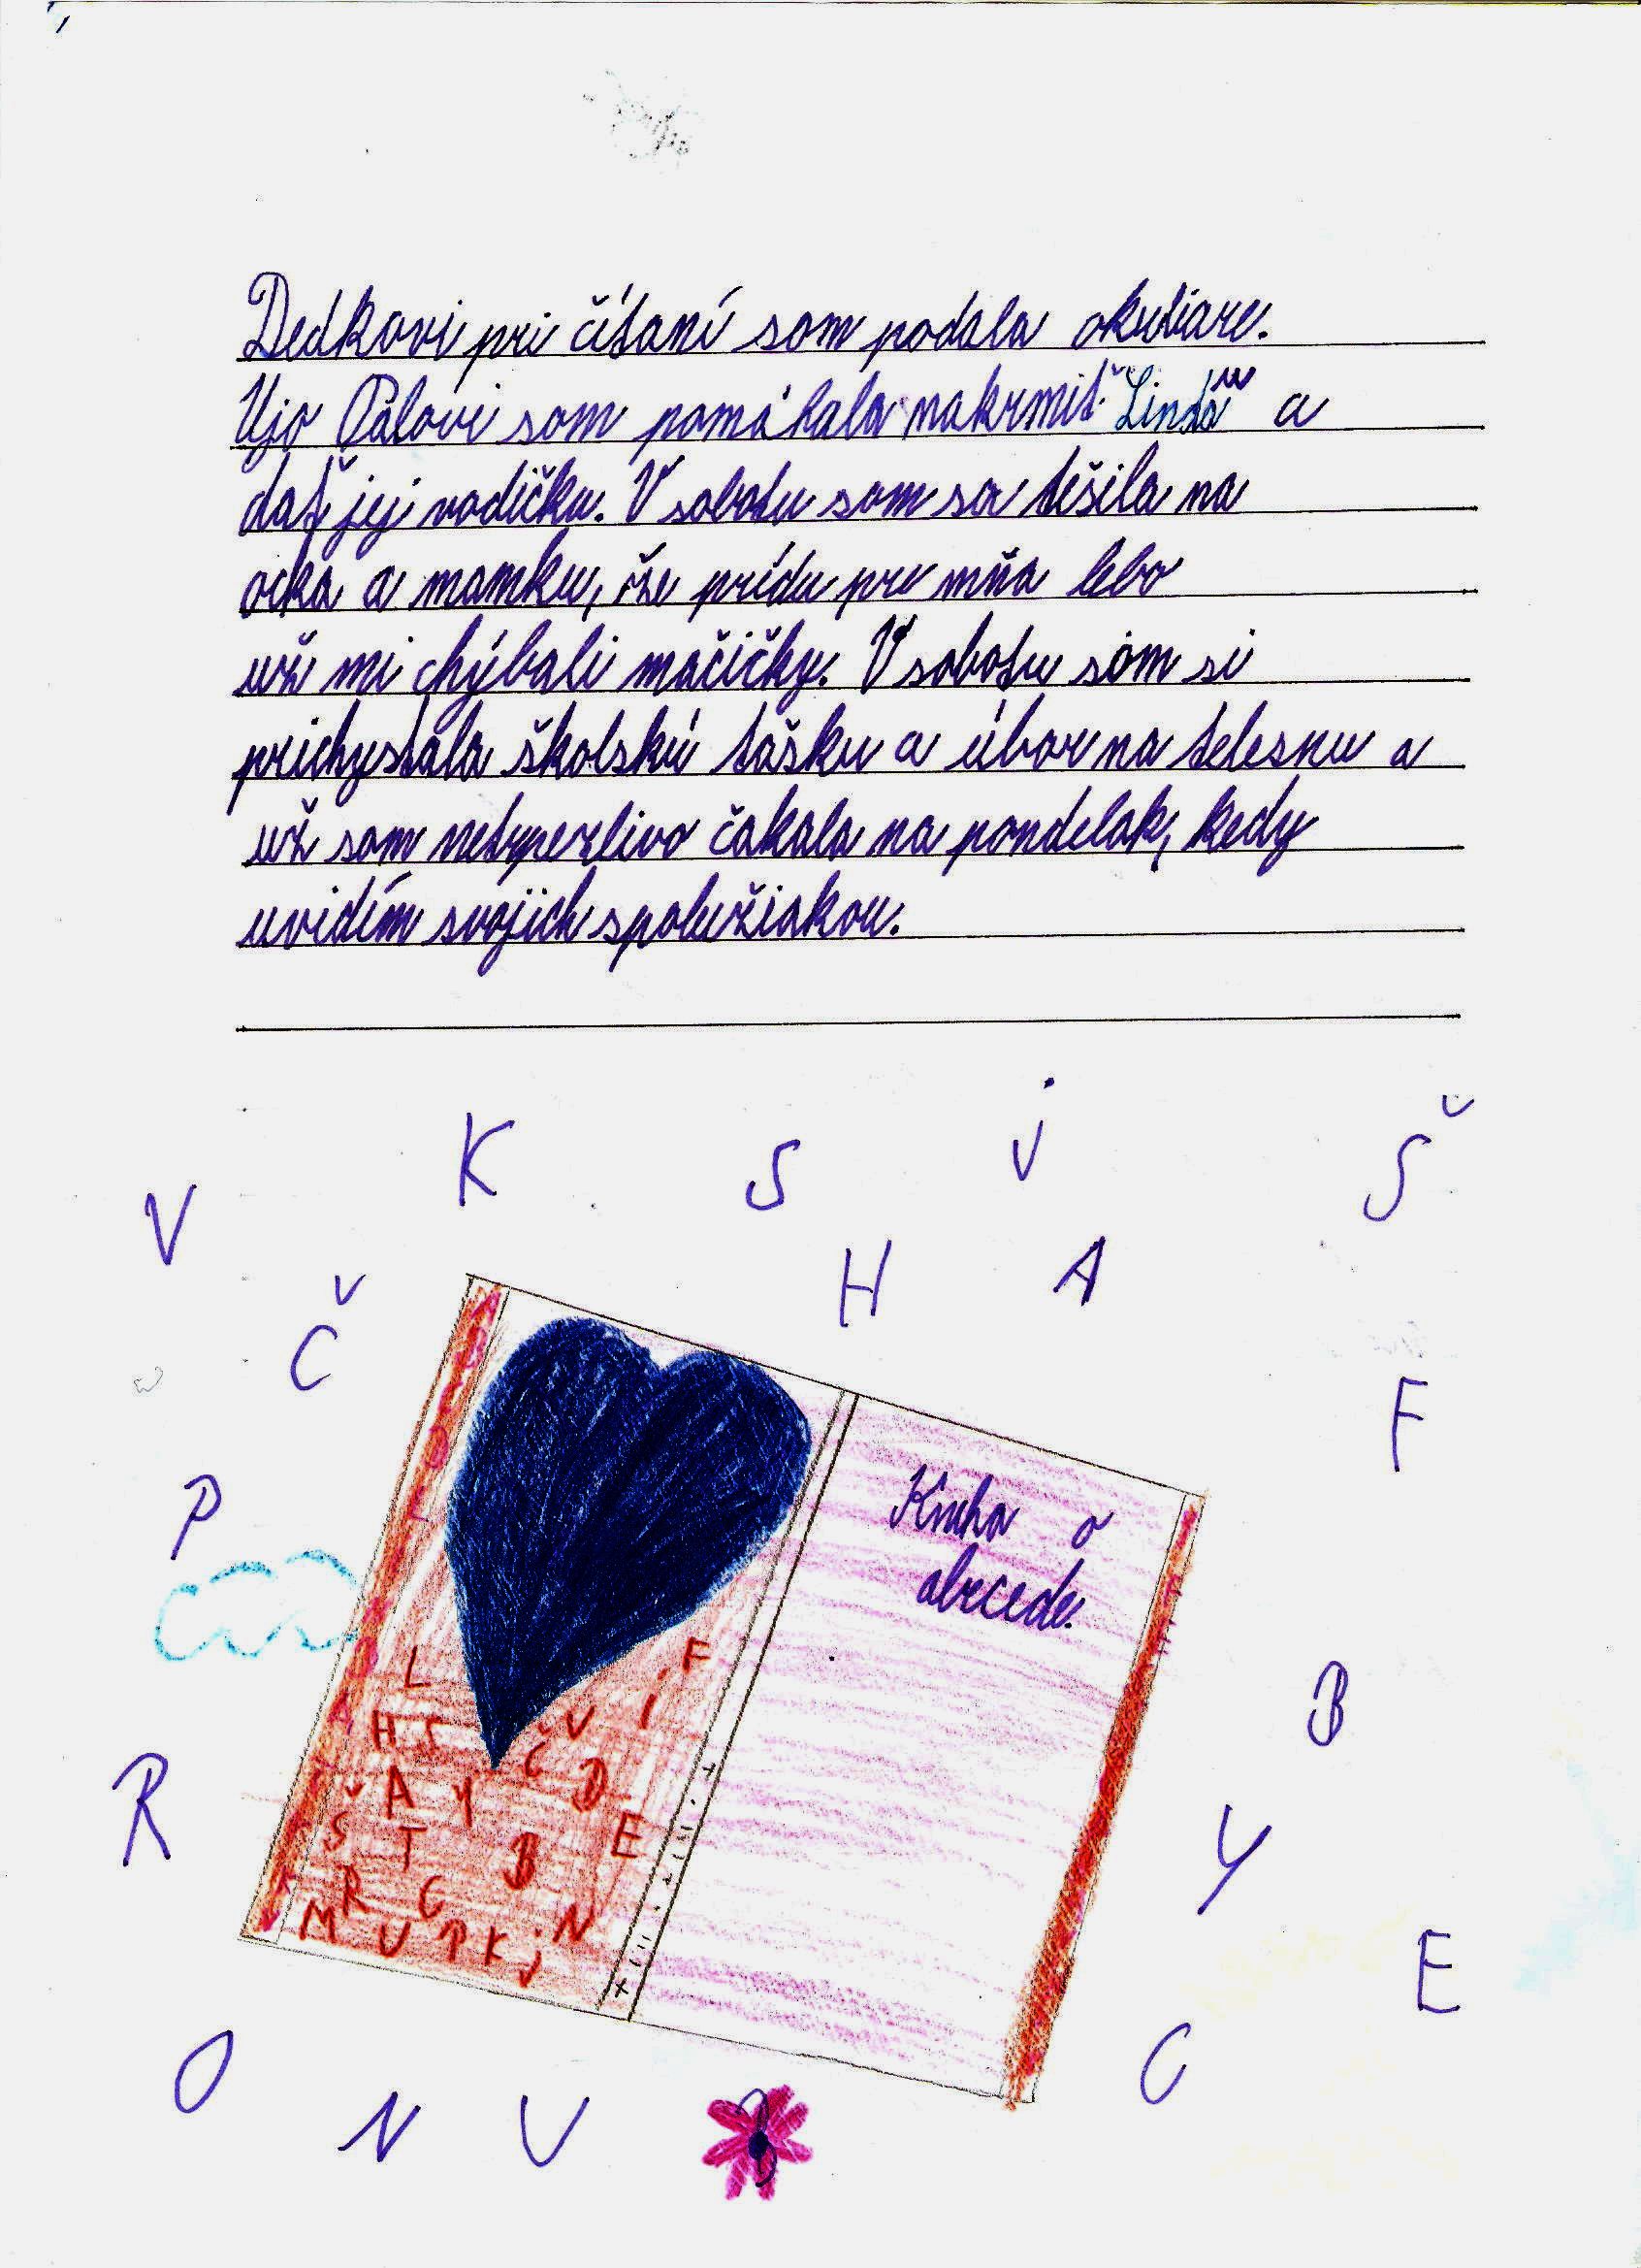 Dedkovi pri čítaní som podala okuliare.
Ujo Paľovi som pomáhala nakrmiť Lindu a
dať jej vodičku. V sobotu som sa tešila na
ocka a mamku, že prídu pre mňa lebo
už mi chýbali mačičky. V sobotu som si
prichystala školskú tašku a úbor na telesnu a
už som netrpezlivo čakala na pondelak, kedy
uvidím svojich spolužiakou.
K S j Š
V
H A
Č
F
Kniha o
abecede.
P
L F
B
H I Č V I
R
Š A Y D
T B E
Y
R C
M U P K j N
E
O C
N U